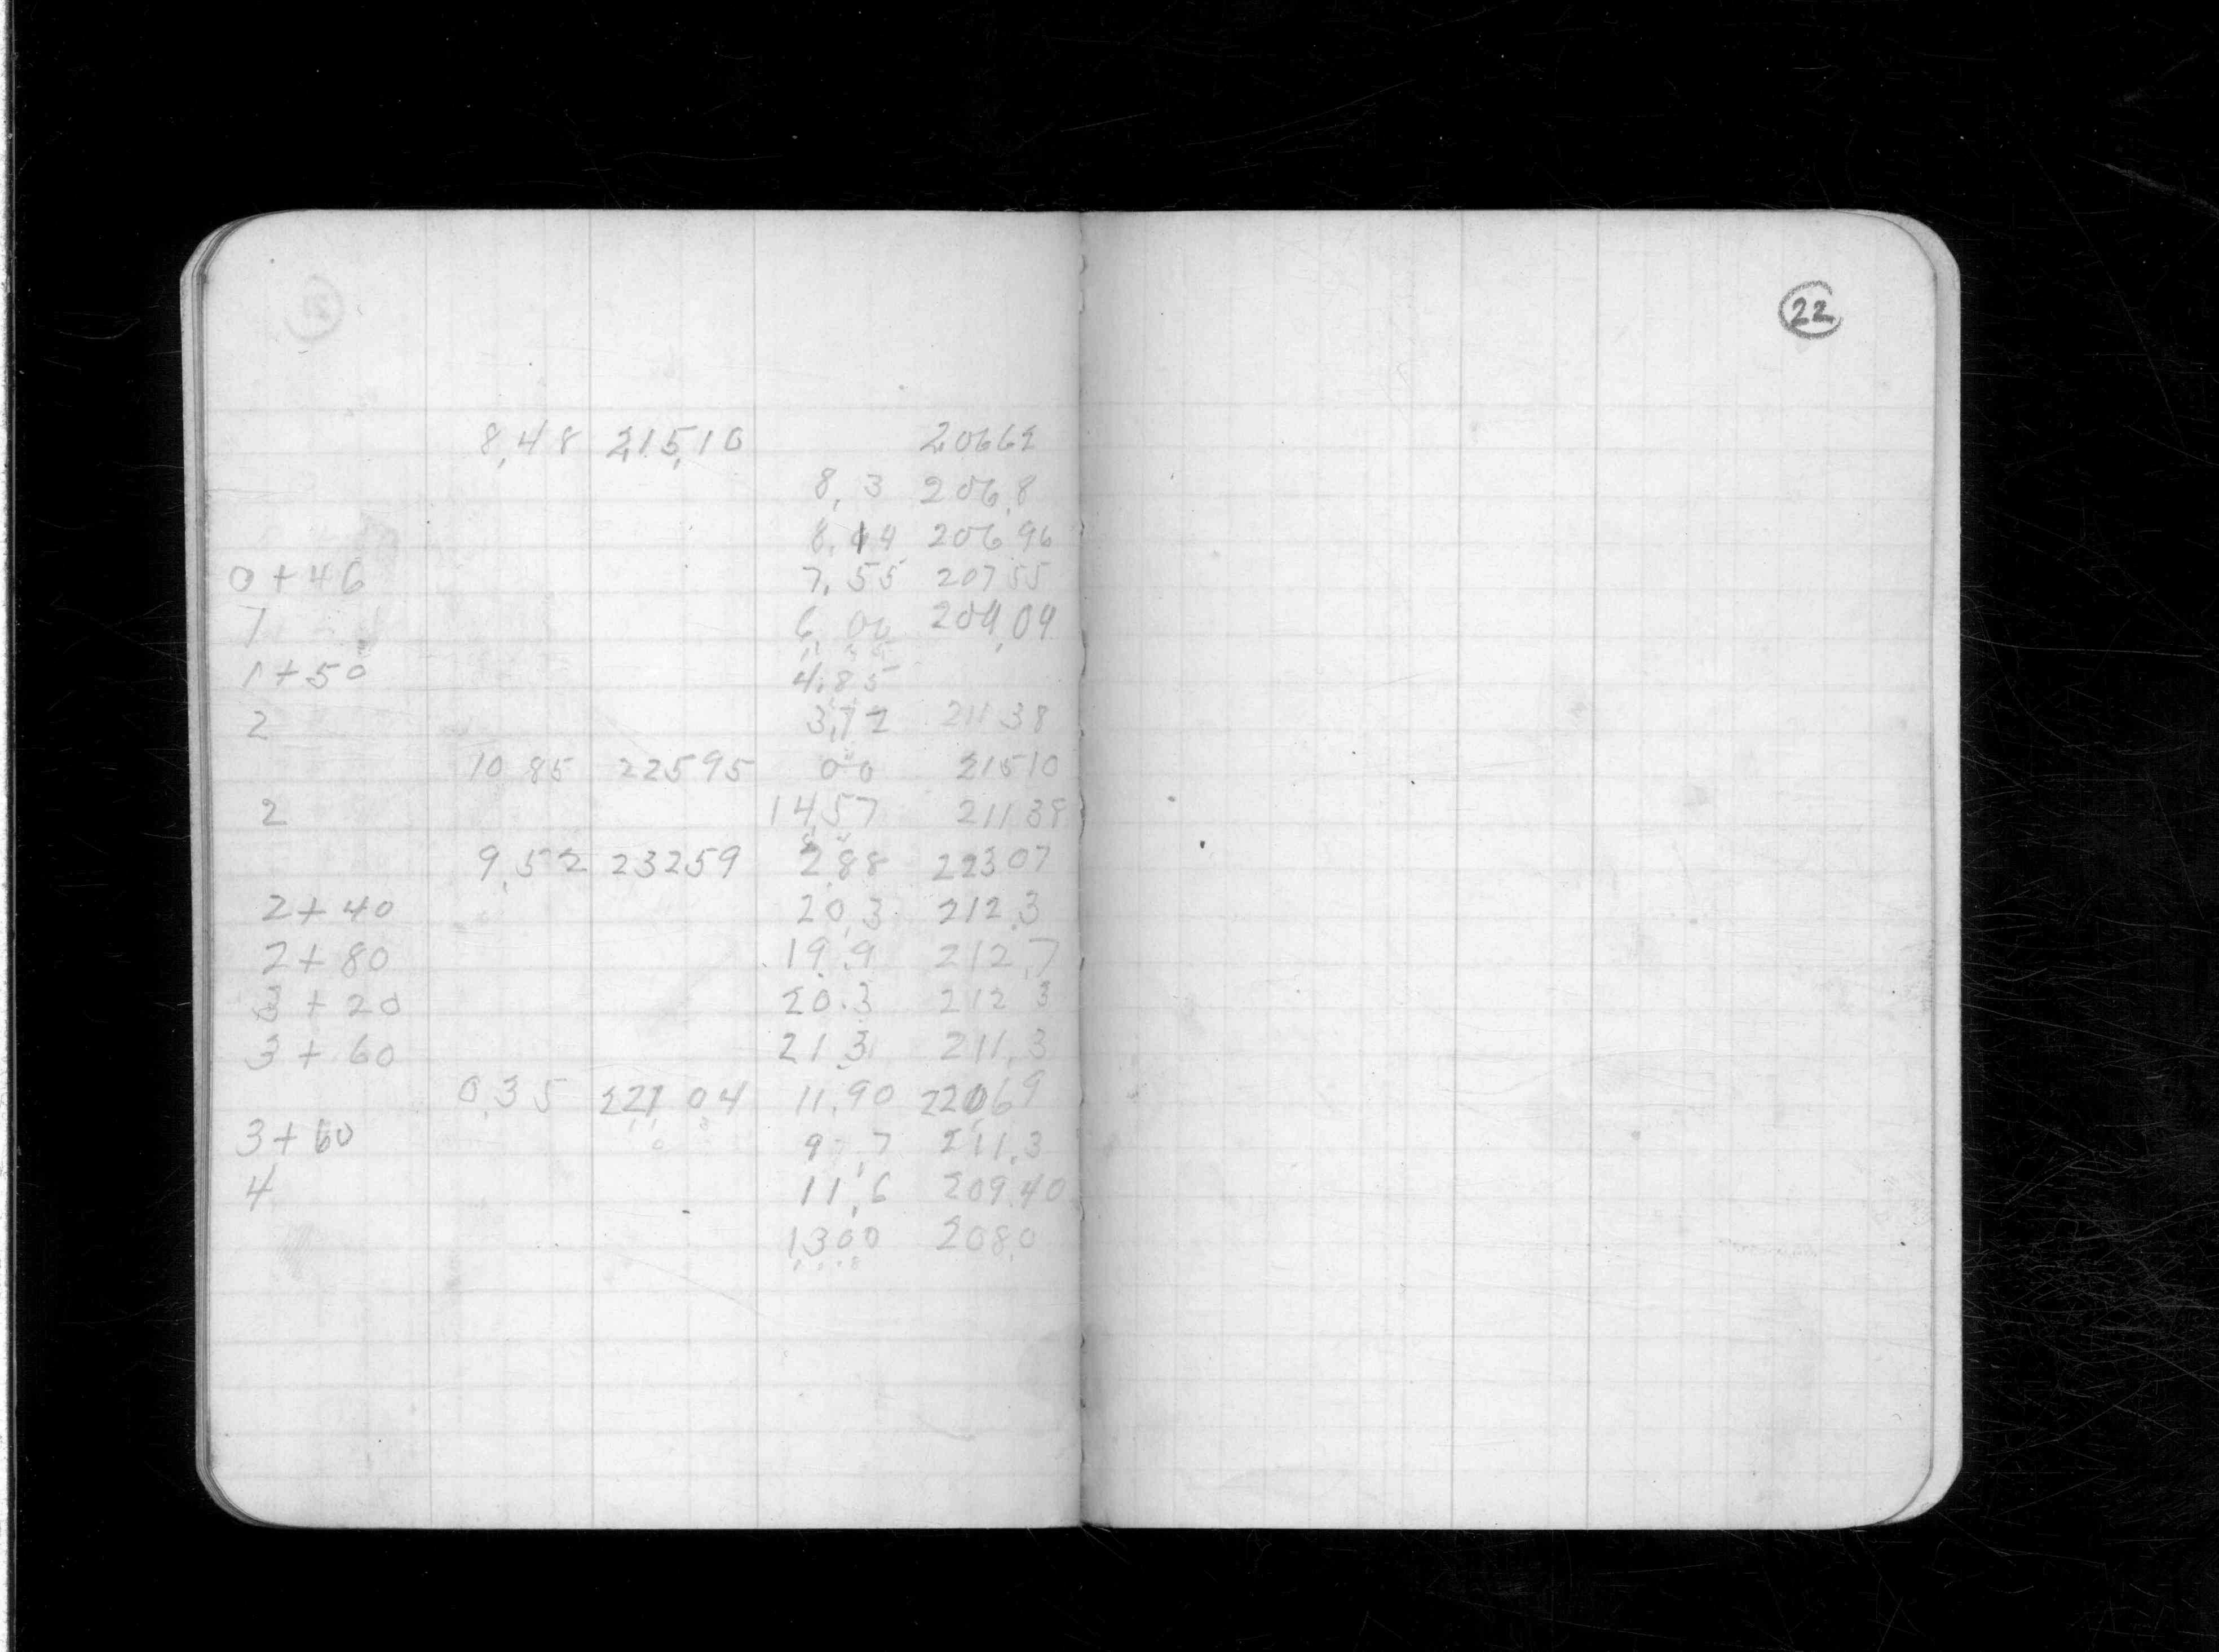 22
8,48 215,10 20662
8,3 206,8
8,14 20696
0+46 7,55 20755
1 6,06 209,04
1+50 4,85
2 3,72 21138
10 85 22595 00 21510
2 14,57 21138
9,52 23259 2,88 22307
2+40 20,3 212,3
2+80 19,9 212,7
3+20 20.3 212 3
3+60 21 3 211,3
0,35 221 04 11,90 22069
3+60 9,7 211,3
4 11,6 209,40
1300 208,0